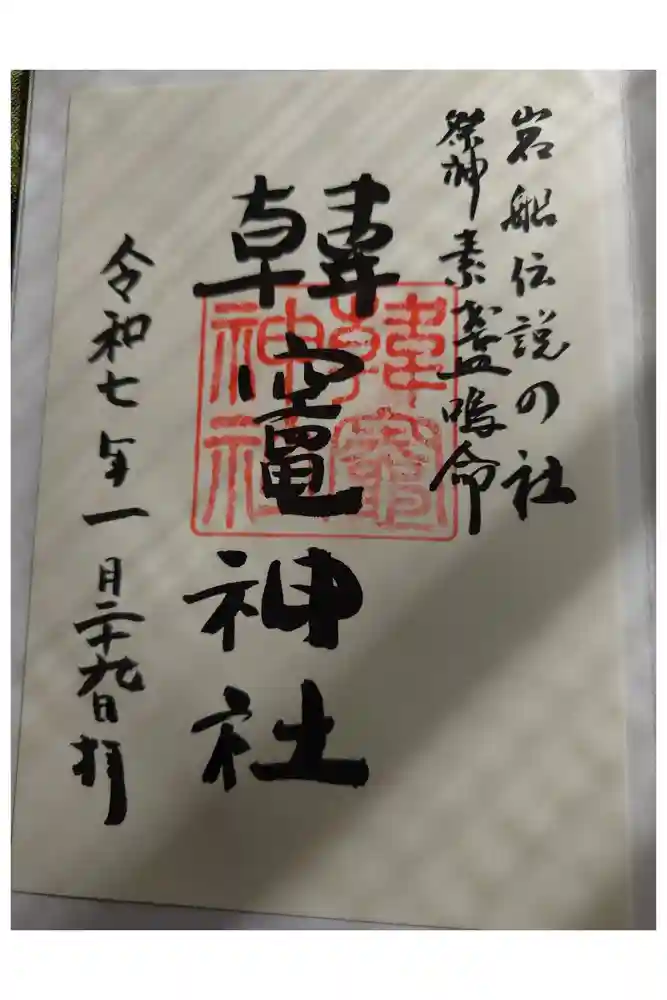 岩船伝説の社
祭神素盞嗚命
韓竈神社
韓竈神社
令和七年一月二十九日拝